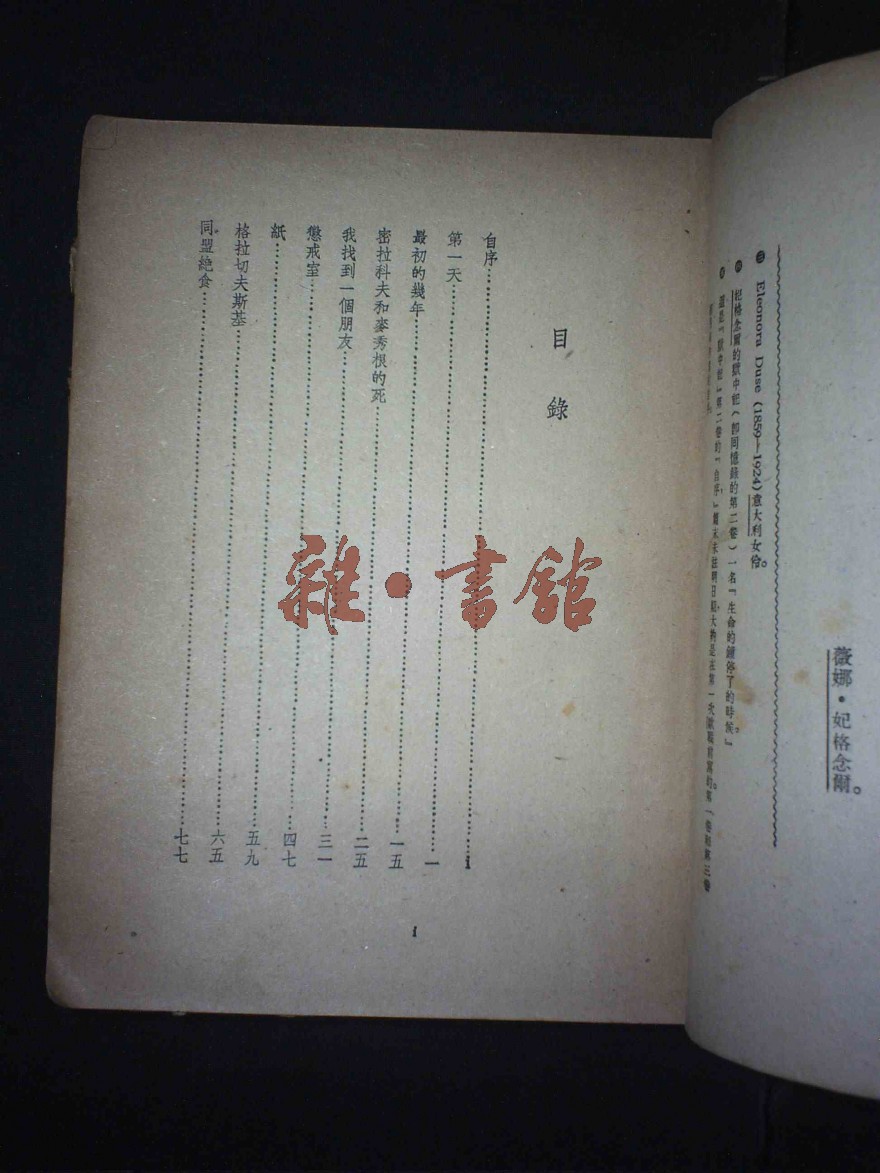 薇娜·妃格念爾。
㊂ Eleonora Duse (1859—1924)意大利女伶。
妃格念爾的獄中記(卽回憶錄的第二卷)一名『生命的鐘停了的時候。』
這是『獄中記』第二卷的『自序,』篇末未註明日期,大約是在第一次歐戰前寫的。第一卷和第三卷
目錄
自序……i
第一天……一
最初的幾年……一五
密拉科夫和麥秀根的死……二五
我找到一個朋友……三一
懲戒室……四七
紙……五九
格拉切夫斯基……六五
同盟絕食……七七
1
雜·書館